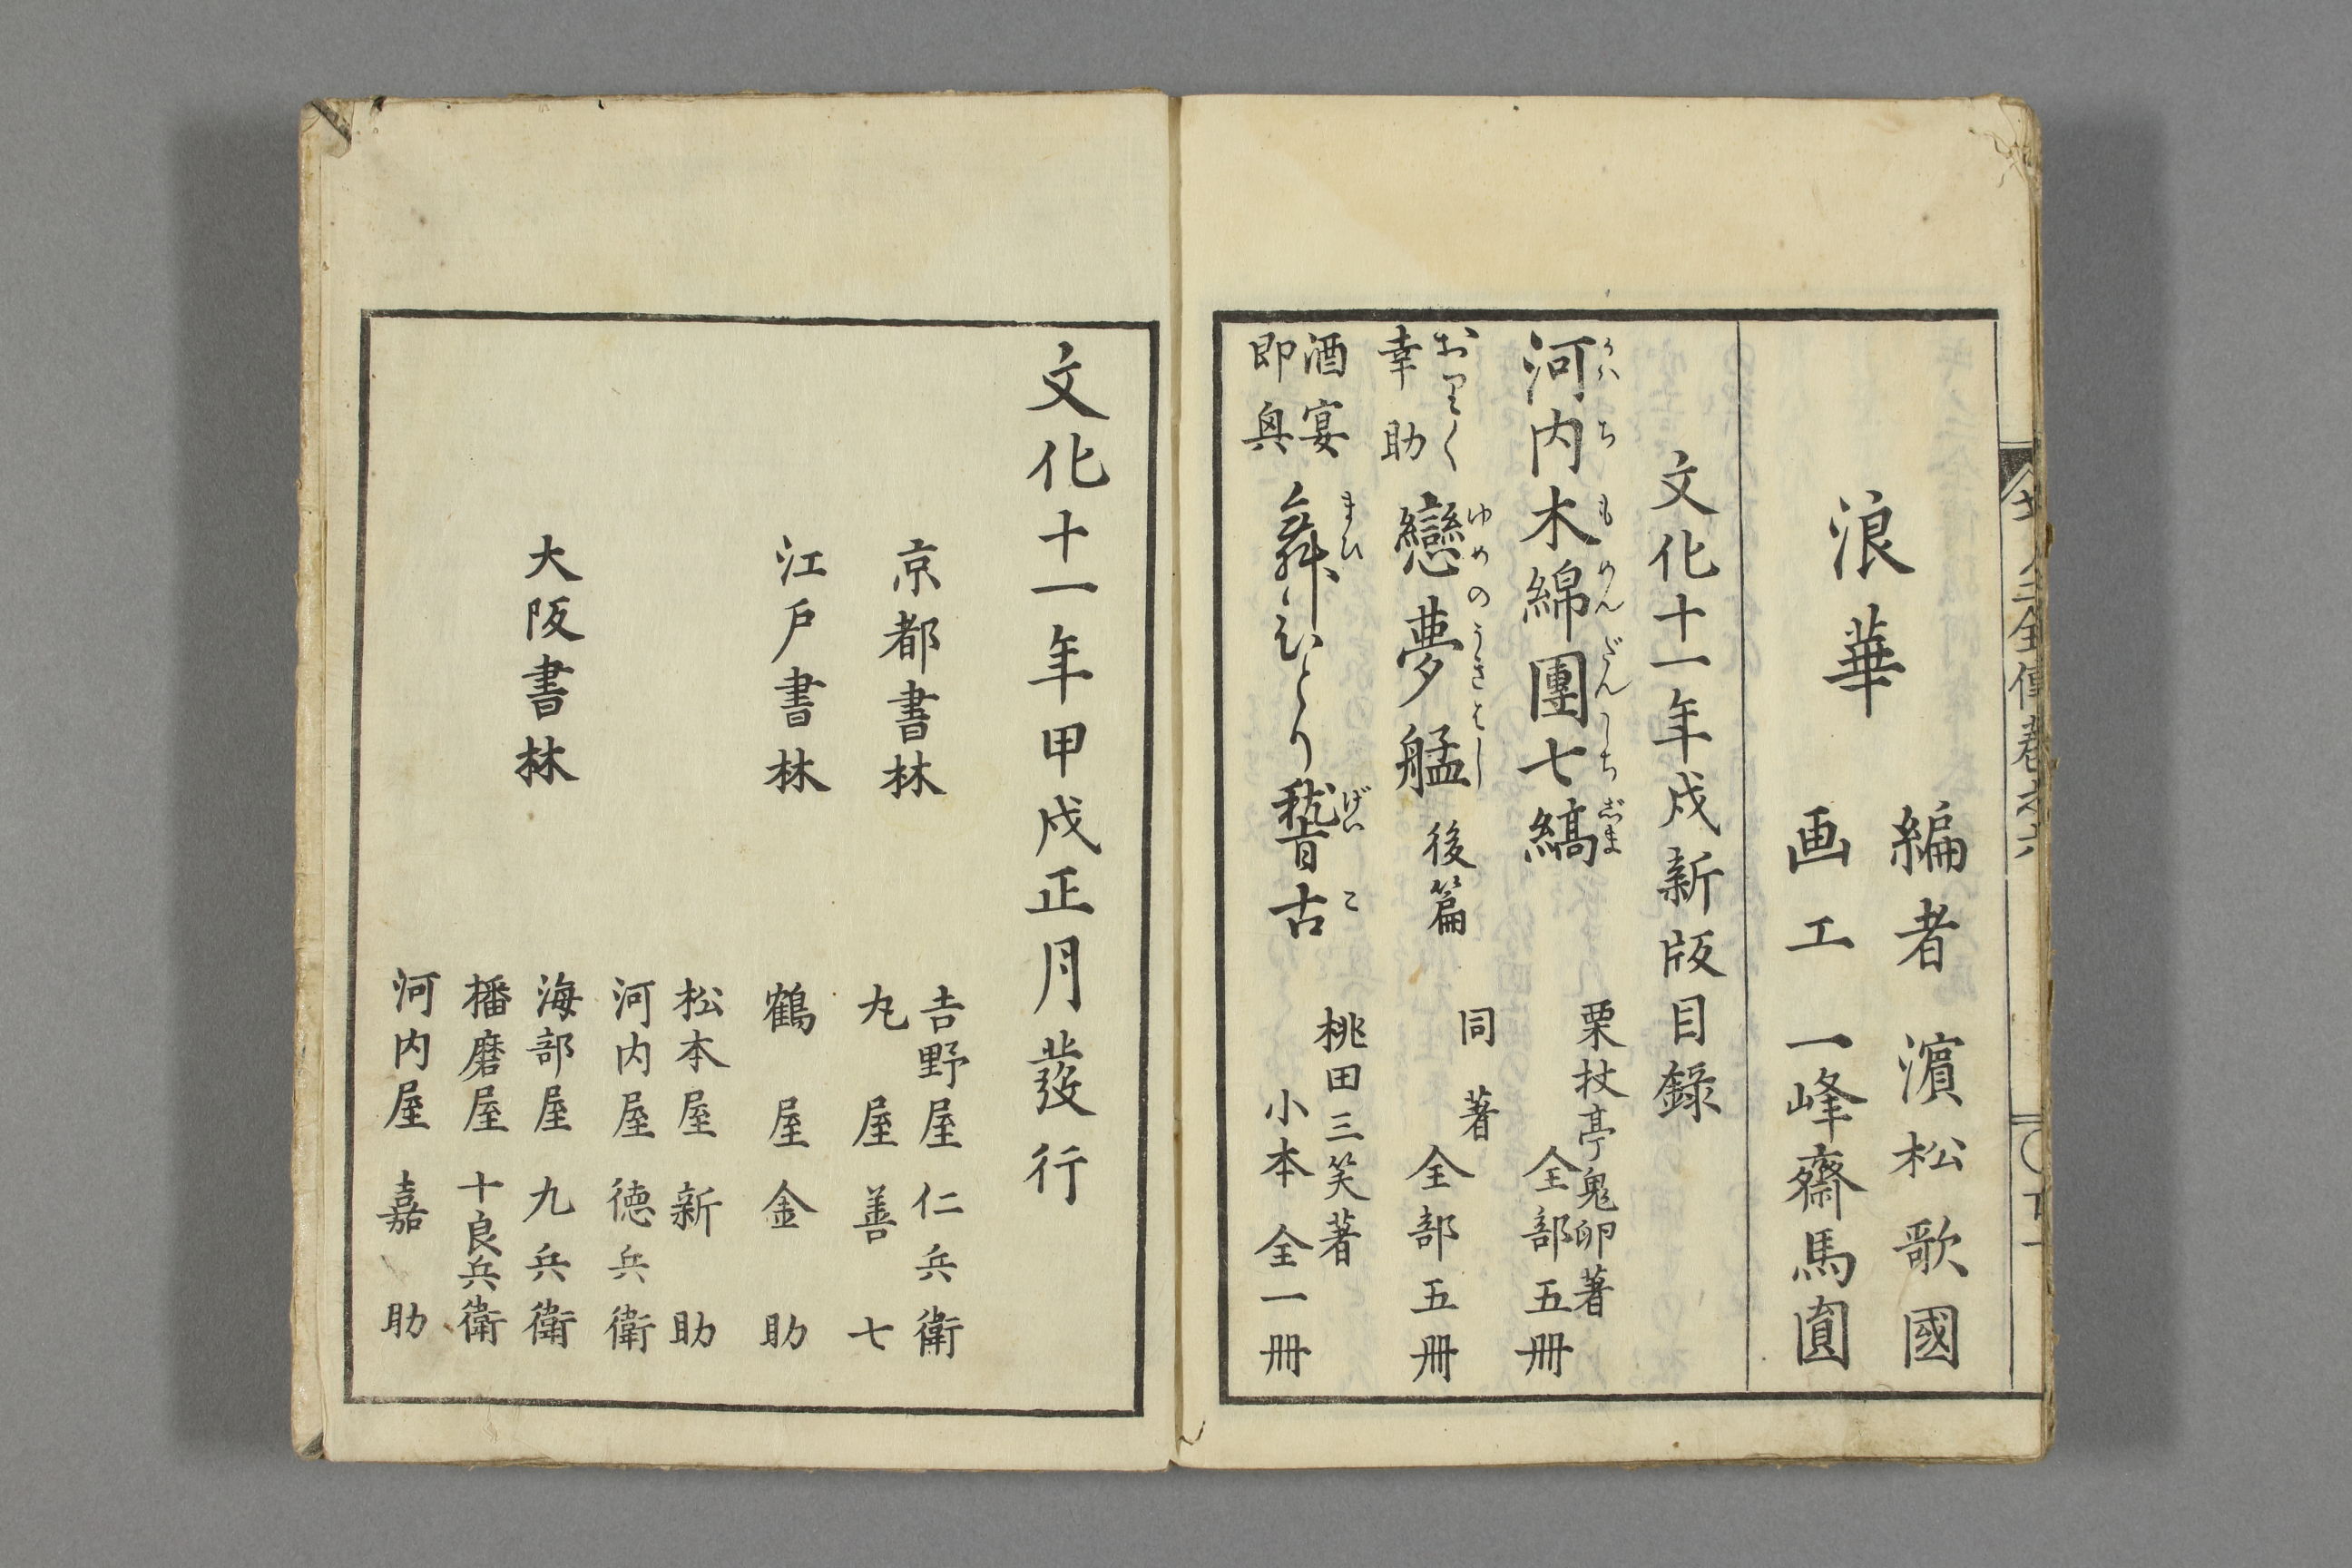 浪華
編者 濱松歌國
画工 一峰齋馬圓
文化十一年戌新版目録
河内木綿團七縞
かはち もめんだんしちじま
栗杖亭鬼卵著
全部五冊
おりく
幸助
戀夢艋 後篇
ゆめのうきはし
同著
全部五冊
酒宴
即興
舞ひとり稽古
まひ げいこ
桃田三笑著
小本全一冊
文化十一年甲戌正月發行
京都書林
吉野屋仁兵衛
丸屋善七
江戸書林
鶴屋金助
大阪書林
松本屋新助
河内屋徳兵衛
海部屋九兵衛
播磨屋十良兵衛
河内屋嘉助